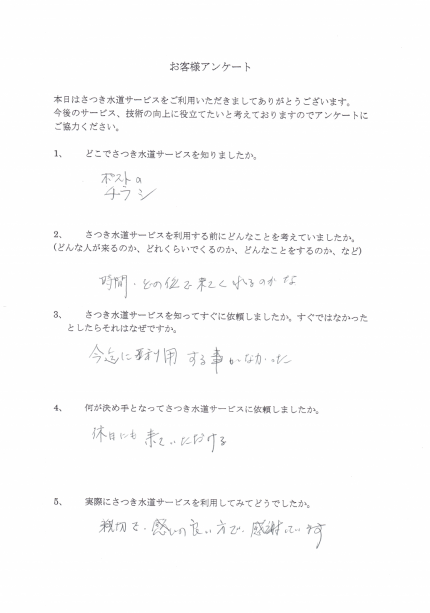 お客様アンケート
本日はさつき水道サービスをご利用いただきましてありがとうございます。
今後のサービス、技術の向上に役立てたいと考えておりますのでアンケートに
ご協力ください。
1、 どこでさつき水道サービスを知りましたか。
ポストの
チラシ
2、 さつき水道サービスを利用する前にどんなことを考えていましたか。
(どんな人が来るのか、どれくらいでくるのか、どんなことをするのか、など)
時間、どの位で来てくれるのかな
3、 さつき水道サービスを知ってすぐに依頼しましたか。すぐではなかった
としたらそれはなぜですか。
今迄に利用する事がなかった
4、 何が決め手となってさつき水道サービスに依頼しましたか。
休日にも来ていただける
5、 実際にさつき水道サービスを利用してみてどうでしたか。
親切で、感じの良い方で、感謝しています